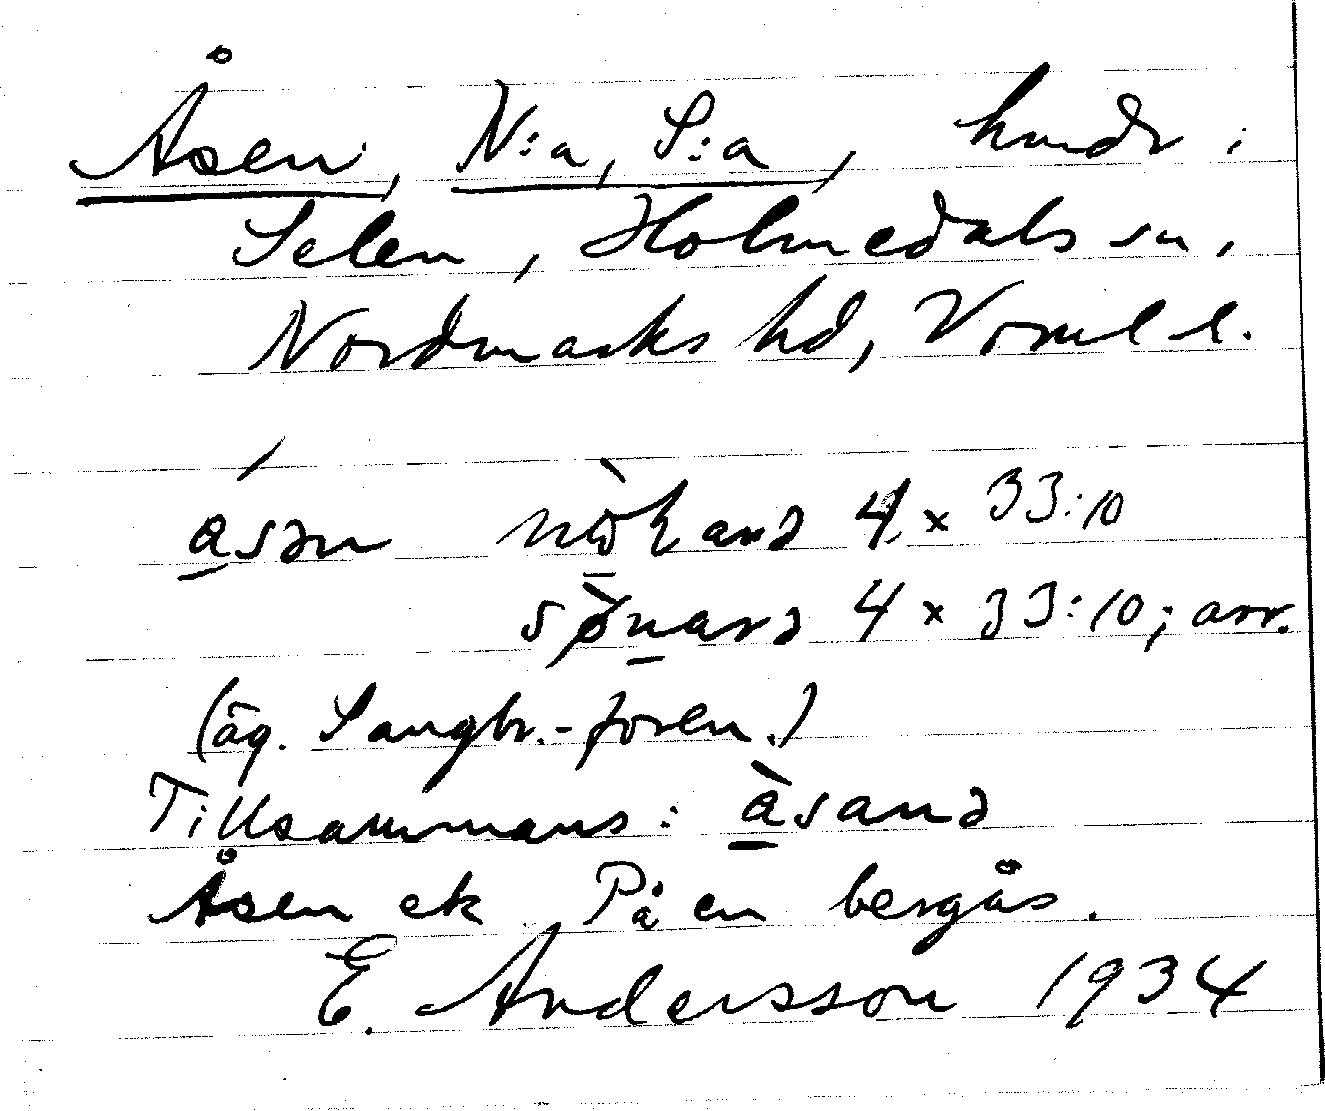 Åsen, N:a, S:a, hmdr i
Selen, Holmedals sn,
Nordmarks hd, Vorml l.
a̱sən nὼ̱ɽanə 4 x 33:10
sø̀ṉarə 4 x 33:10; arr.
(äg. Langbr.-fören.)
Tillsammans: à̱sanə
Åsen ek På en bergås.
E. Andersson 1934